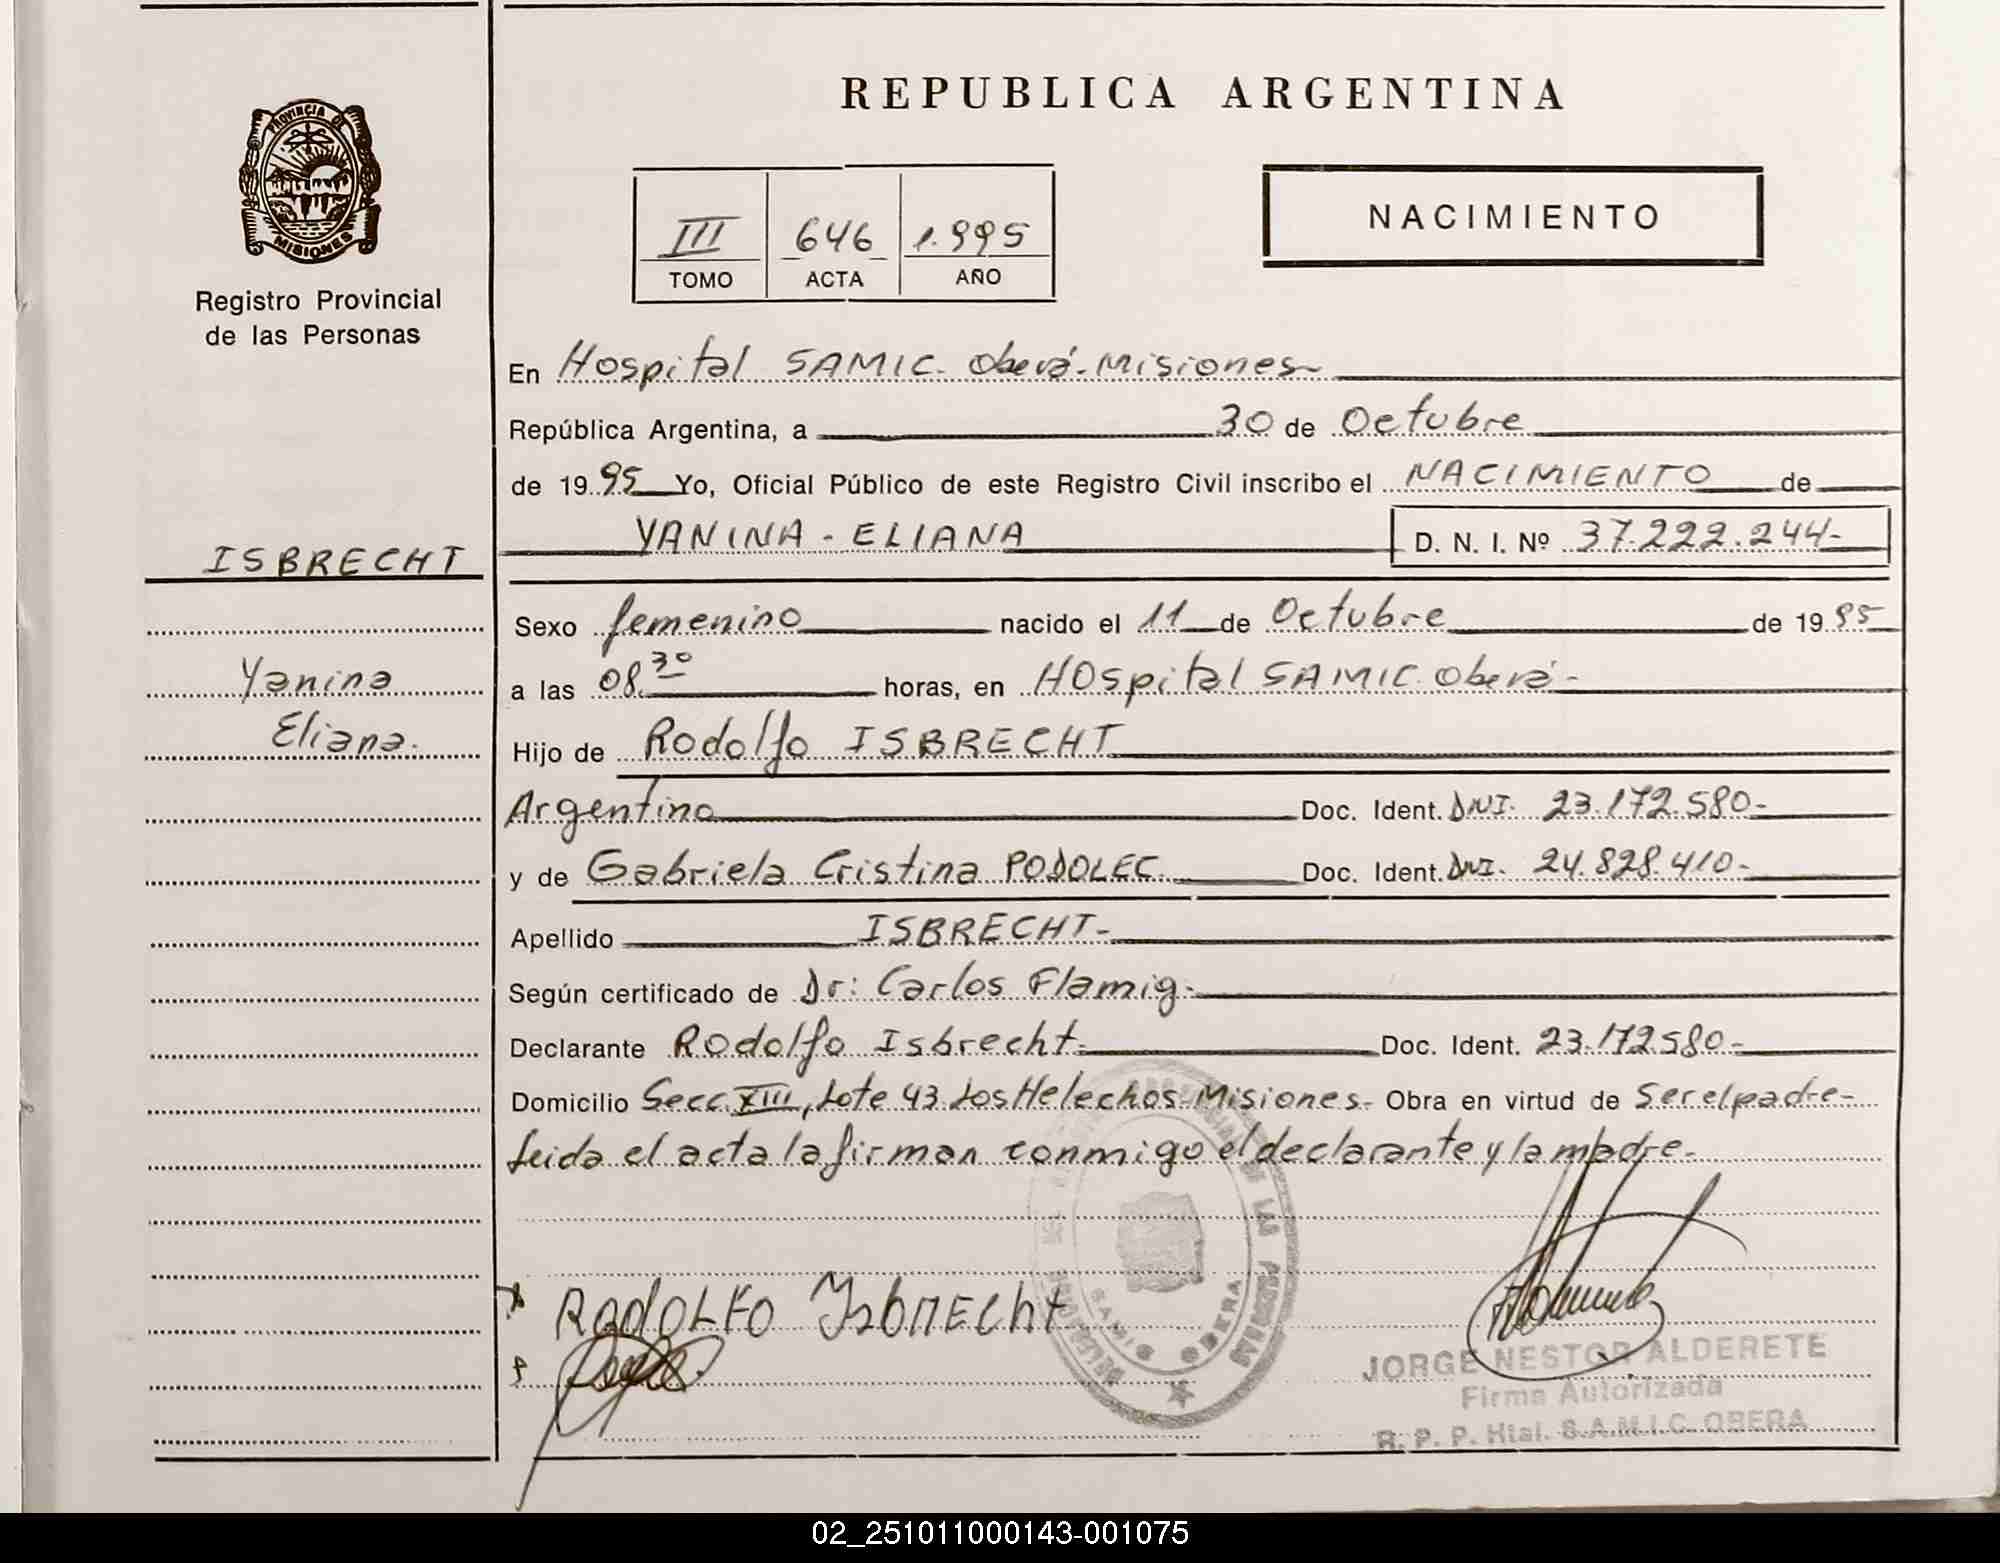 REPUBLICA ARGENTINA
PROVINCIA DE
MISIONES
Registro Provincial
de las Personas
III 646 1.995
TOMO ACTA AÑO
NACIMIENTO
En Hospital SAMIC. Oberá-Misiones
República Argentina, a 30 de Octubre
de 1995 Yo, Oficial Público de este Registro Civil inscribo el NACIMIENTO de
YANINA - ELIANA D. N. I. Nº 37.222.244-
ISBRECHT
Yanina
Eliana.
Sexo femenino nacido el 11 de Octubre de 1995
a las 08.30 horas, en HOspital SAMIC. Oberá-
Hijo de Rodolfo ISBRECHT
Argentino Doc. Ident. DNI. 23.172.580-
y de Gabriela Cristina PODOLEC. Doc. Ident. DNI. 24.828.410-
Apellido ISBRECHT-
Según certificado de Dr: Carlos Flamig-
Declarante Rodolfo Isbrecht- Doc. Ident. 23.172580-
Domicilio Secc. XIII, Lote 43 Los Helechos-Misiones- Obra en virtud de ser el padre-
Leida el acta la firman conmigo el declarante y la madre-
RODOLFO IsbRECht
DE LAS PERSONAS
SAMIC OBERA
JORGE NESTOR ALDERETE
Firma Autorizada
R. P. P. Htal. S.A.M.I.C. OBERA
02_251011000143-001075